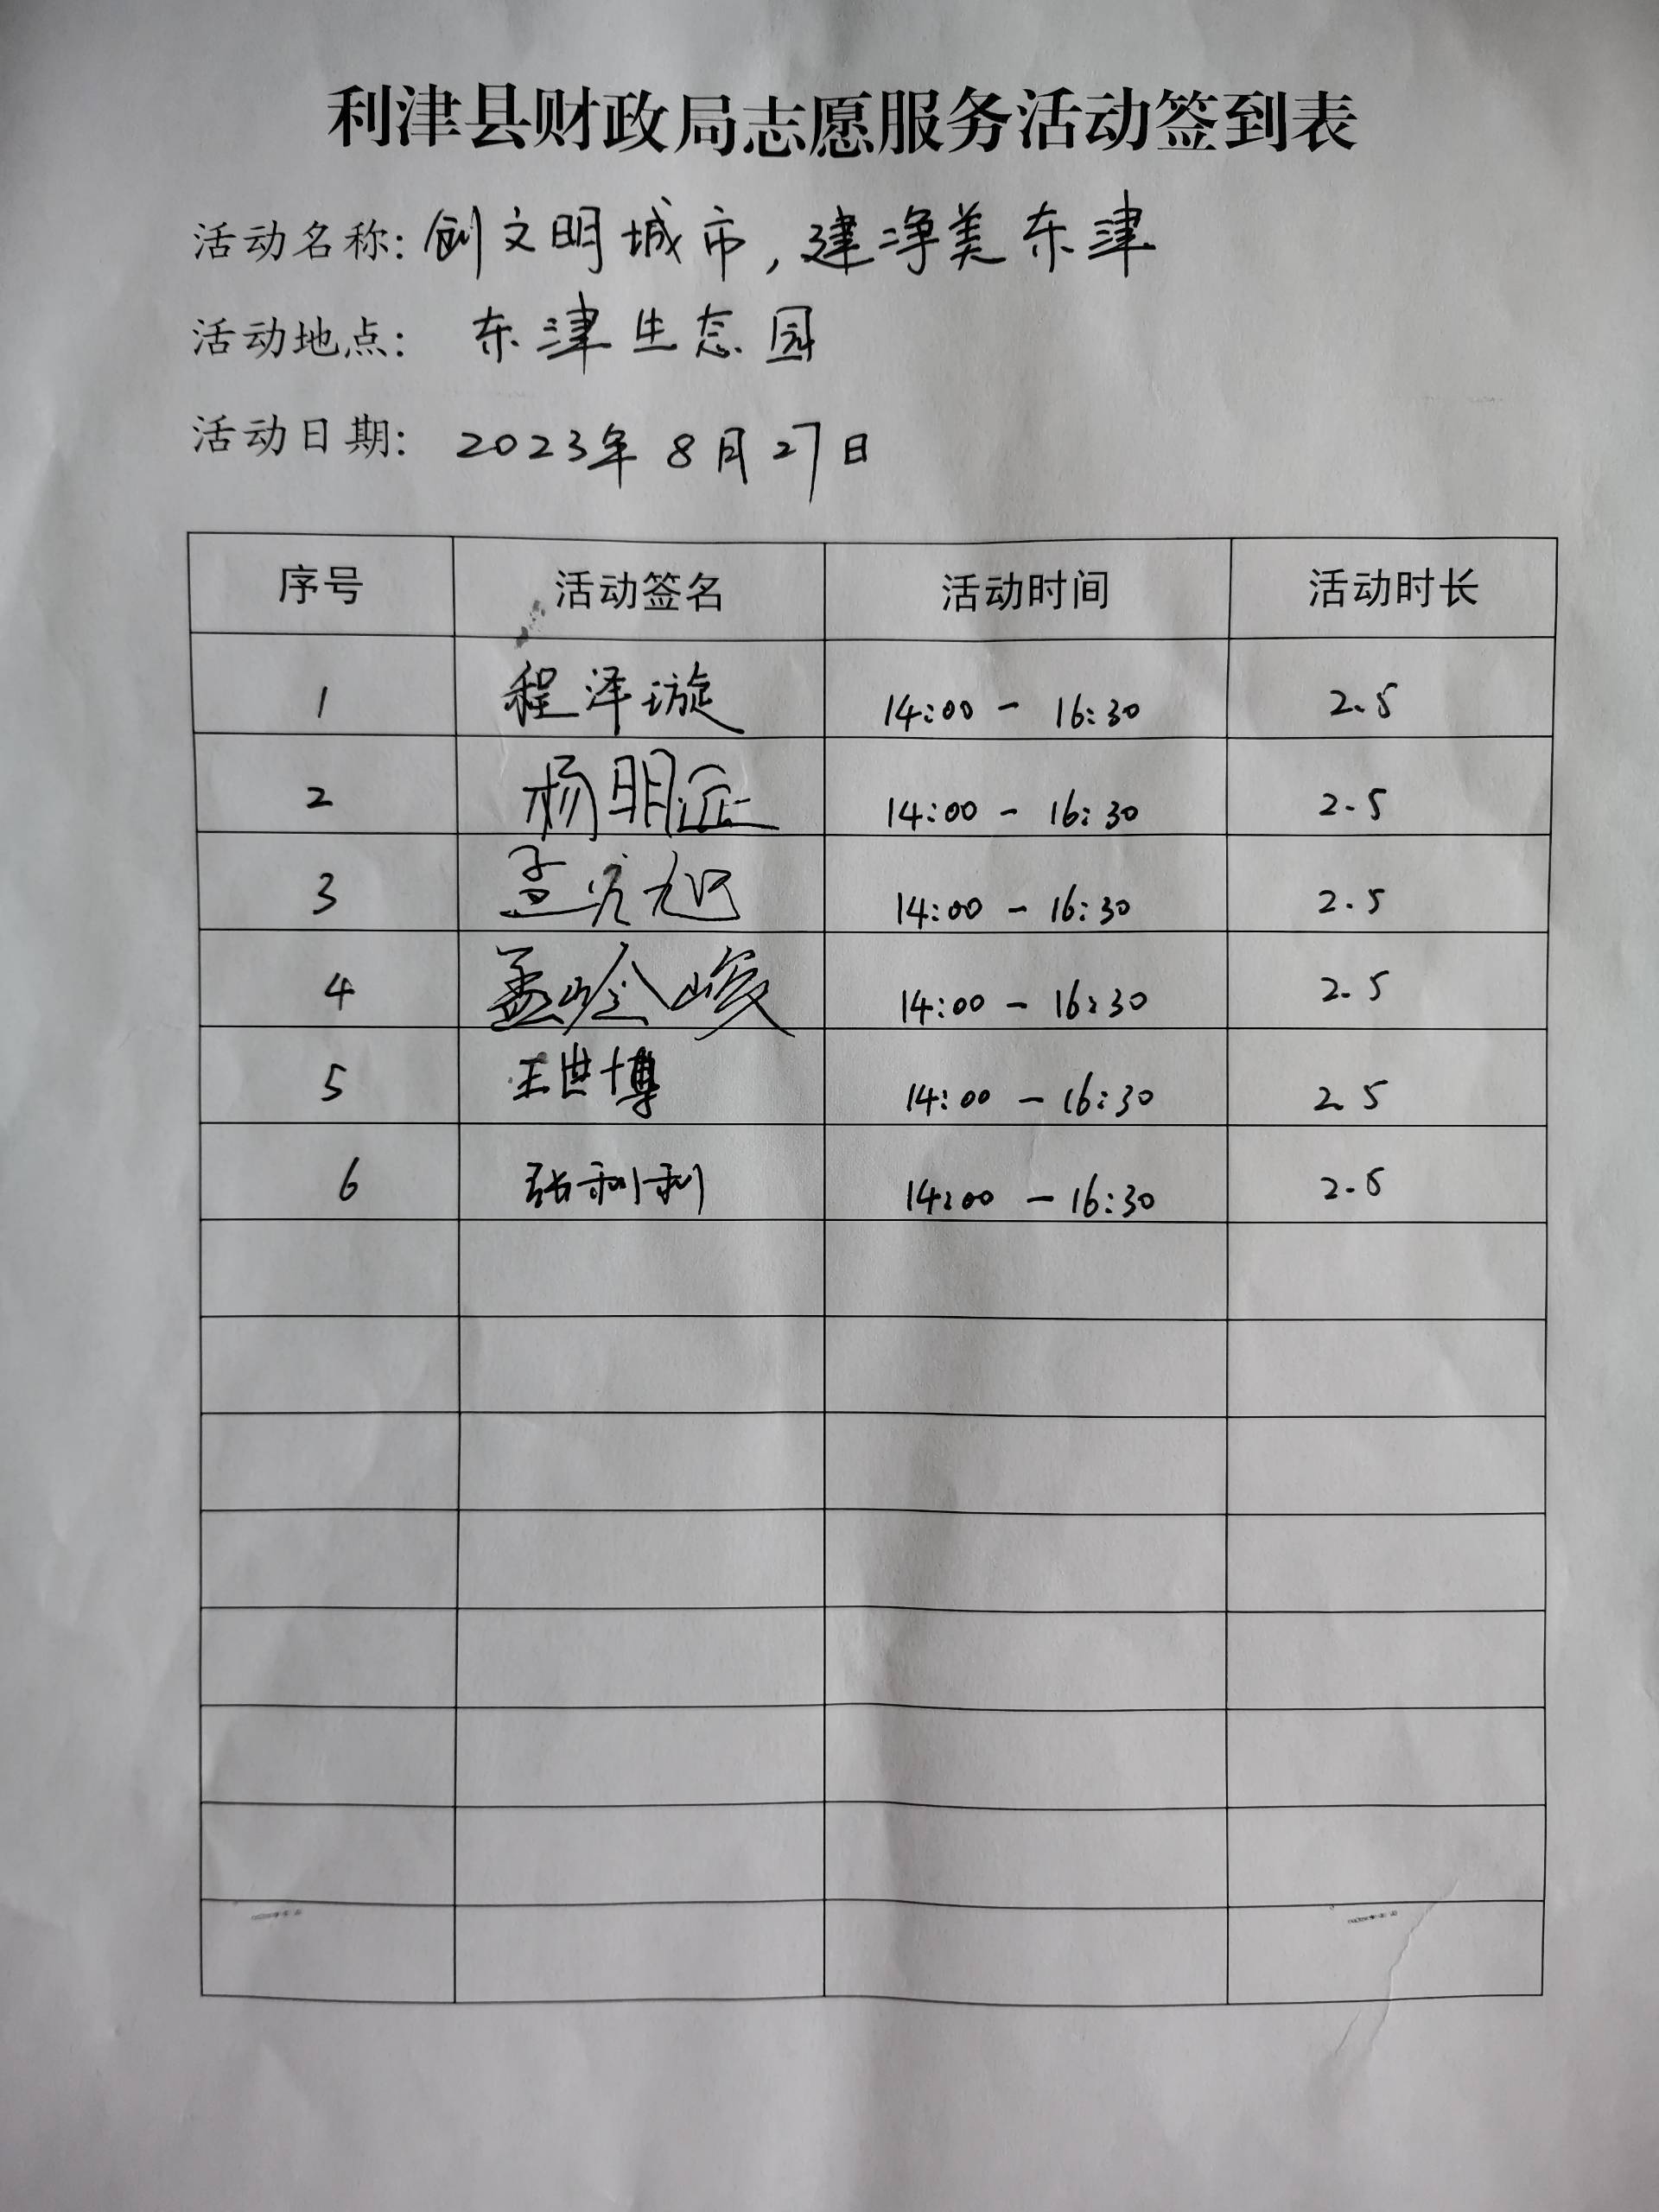 利津县财政局志愿服务活动签到表
活动名称：创文明城市，建净美东津
活动地点：东津生态园
活动日期：2023年8月27日
序号 活动签名 活动时间 活动时长
1 程泽璇 14:00-16:30 2.5
2 14:00-16:30 2.5
3 14:00-16:30 2.5
4 孟岭峻 14:00-16:30 2.5
5 王世博 14:00-16:30 2.5
6 张利利 14:00-16:30 2.5